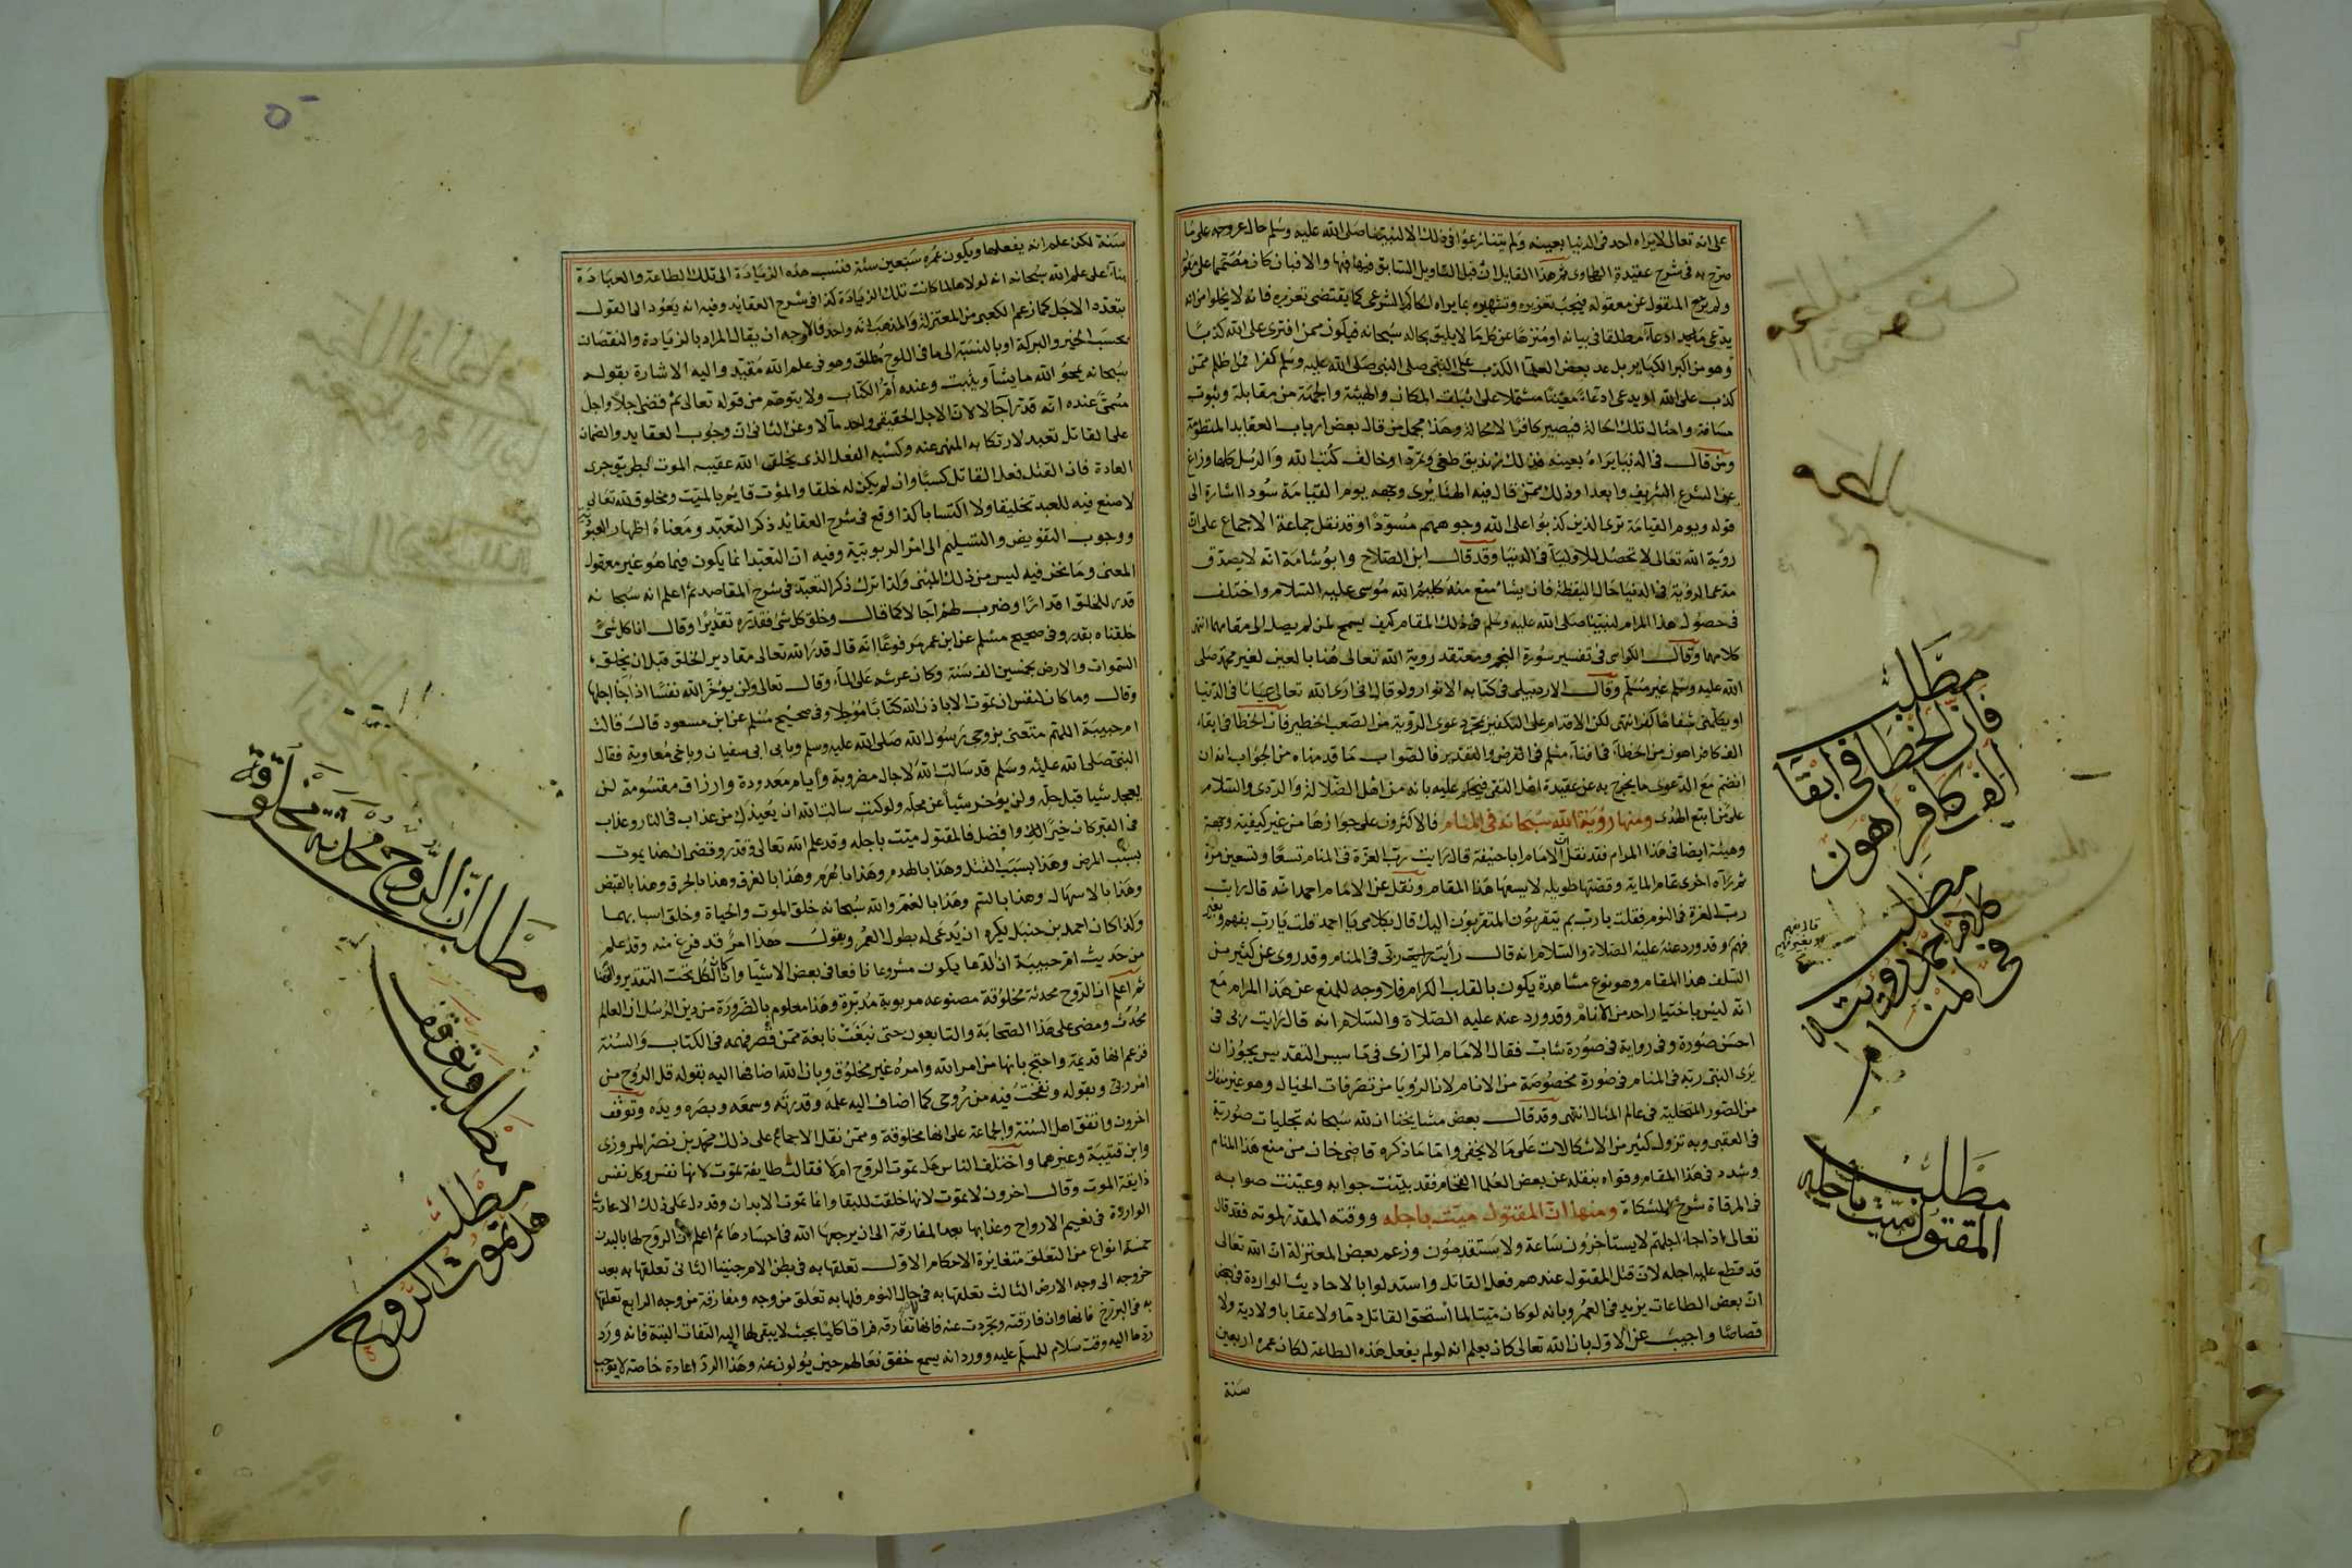 على انه تعالى لا يراه احد فى الدنيا بعينه ولم يتنازعوا فى ذلك الا لنبينا صلى الله عليه وسلم حال عروجه على ما
صرح به فى شرح عقيدة الطحاوى ثم هذا القايل ان قبل التاويل السابق فبها والا فان كان مصمما على مقوله
ولم يرجع المنقول عن معقوله فيجب تعزيره وتشهيره بما يراه الحاكم الشرعى كما يقتضى تعزيره فانه لا يخلوا من انه
يدعى ادعاء مطلقا فى بيانه او منزها عن كل ما لا يليق بحاله سبحانه فيكون ممن افترى على الله كذبا
وهو من اكبر الكباير بل عد بعض العلما الكذب على النبى صلى الله عليه وسلم كفرا فمن اظلم ممن
كذب على الله او يدعى ادعاء معينا مشتملا على اثبات المكان والهيئة والجهة من مقابلة وثبوت
مسافة وامثال تلك الحالة فيصير كافرا لا محالة وهذا مجمل من قال بعض ارباب العقايد المنظومة
ومن قال فى الدنيا يراه بعينه فذلك زنديق طغى وتمردا وخالف كتب الله والرسل كلها وزاغ
عن الشرع الشريف وابعدا وذلك ممن قال فيه الهنا يرى وجهه يوم القيامة سودا اشارة الى
قوله ويوم القيامة ترى الذين كذبوا على الله وجوههم مسودة وقد نقل جماعة الاجماع على ان
روية الله تعالى لا تحصل للاولياء فى الدنيا وقد قال ابن الصلاح وابو شامة انه لا يصدق
مدعى الروية فى الدنيا حال اليقظة فان شيئا منع منه كليم الله موسى عليه السلام واختلف
فى حصول هذا المرام لنبينا صلى الله عليه وسلم فى ذلك المقام كيف يسمح لمن لم يصل الى مقامهما انتهى
كلامهما وقال الكواشى فى تفسير سورة النجم ومعتقد روية الله تعالى هنا بالعين لغير محمد صلى
الله عليه وسلم غير مسلم وقال الاردبيلى فى كتابه الانوار ولو قال انى ارى الله تعالى عيانا فى الدنيا
او يكلمنى شفاها كفر انتهى لكن الاقدام على التكفير بمجرد دعوى الروية من الصعب الخطير فان الخطا فى ابقاء
الف كافر اهون من الخطاء فى افناء مسلم فى الفرض والتقدير فالصواب ما قدمناه من الجواب انه ان
انضم مع الدعوى ما يخرج به عن عقيدة اهل التقى فيحكم عليه بانه من اهل الضلالة والردى والسلام
على من اتبع الهدى ومنها روية الله سبحانه فى المنام فالاكثرون على جوازها من غير كيفية وجهة
وهيئة ايضا فى هذا المرام فقد نقل ان الامام ابا حنيفة قال رايت رب العزة فى المنام تسعا وتسعين مرة
ثم رآه اخرى تمام الماية وقصتها طويله لا يسعها هذا المقام ونقل عن الامام احمد انه قال رايت
رب العزة فى النوم فقلت يا رب بم يتقرب المتقربون اليك قال بكلامى يا احمد قلت يا رب بفهم وبغير
فهم وقد ورد عنه عليه الصلاة والسلام انه قال رأيت ربى فى المنام وقد روى عن كثير من
السلف هذا المقام وهو نوع مشاهدة يكون بالقلب للكرام فلا وجه للمنع عن هذا المرام مع
انه ليس باختيار احد من الانام وقد ورد عنه عليه الصلاة والسلام انه قال رايت ربى فى
احسن صورة وفى رواية فى صورة شاب فقال الامام الرازى فى تاسيس التقديس يجوز ان
يرى النبى ربه فى المنام فى صورة مخصوصة من الانام لان الرويا من تصرفات الخيال وهو غير منفك
من الصور المتخيلة فى عالم المثال انتهى وقد قال بعض مشايخنا ان لله سبحانه تجليات صورية
فى العقبى وبه تزول كثير من الاشكالات على ما لا يخفى واما ما ذكره قاضى خان من منع هذا المنام
وشدد فى هذا المقام وقواه بنقله عن بعض العلما الفخام فقد بينت جوابه وعينت صوابه
فى المرقاة شرح المشكاة ومنها ان المقتول ميت باجله ووقته المقدر لموته فقد قال
تعالى اذا جاء اجلهم لا يستاخرون ساعة ولا يستقدمون وزعم بعض المعتزلة ان الله تعالى
قد قطع عليه اجله لان قتل المقتول عندهم فعل القاتل واستدلوا بالاحاديث الواردة فى بعض
ان بعض الطاعات يزيد فى العمر وبانه لو كان ميتا لما استحق القاتل ذما ولا عقابا ولا دية ولا
قصاصا واجيب عن الاول بان الله تعالى كان يعلم انه لو لم يفعل هذه الطاعة لكان عمره اربعين
سنة
مطلب
فان الخطا فى ابقا
الف كافر اهون
مطلب
كلام احمد رويت
فى المنام
قال بفهم
وبغير فهم
مطلب
المقتول ميت باجله
سنة لكن علم انه يفعلها ويكون عمره سبعين سنة فنسبت هذه الزيادة الى تلك الطاعة والعبادة
بناء على علم الله سبحانه انه لولاها لما كانت تلك الزيادة كذا فى شرح العقايد وفيه انه يعود الى القول
بتعدد الاجل كما زعم الكعبى من المعتزلة والمذهب انه واحد فالاوجه ان يقال المراد بالزيادة والنقصان
بحسب الخير والبركة او بالنسبة الى ما فى اللوح مطلق وهو فى علم الله مقيد واليه الاشارة بقوله
سبحانه يمحو الله ما يشآ ويثبت وعنده ام الكتاب ولا يتوهم من قوله تعالى ثم قضى اجلا واجل
مسمى عنده انه قدر آجالا لان الاجل الحقيقى واحد مآلا وعن الثانى ان وجوب العقاب والضمان
على القاتل تعبد لارتكابه المنهى عنه وكسبه الفعل الذى يخلق الله عقيبه الموت بطريق جرى
العادة فان القتل فعل القاتل كسبا وان لم يكن له خلقا والموت قايم بالميت ومخلوق لله تعالى
لا صنع فيه للعبد تخليقا ولا اكتسابا كذا وقع فى شرح العقائد ذكر التعبد ومعناه اظهار العبودية
ووجوب التفويض والتسليم الى امر الربوبية وفيه ان التعبد انما يكون فيما هو غير معقول
المعنى وما نحن فيه ليس من ذلك المبنى ولذا ترك ذكر التعبد فى شرح المقاصد ثم اعلم انه سبحانه
قدر للخلق اقدارا وضرب لهم آجالا كما قال وخلق كل شئ فقدره تقديرا وقال انا كل شئ
خلقناه بقدر وفى صحيح مسلم عن ابن عمر مرفوعا انه قال قدر الله تعالى مقادير الخلق قبل ان يخلق
السموات والارض بخمسين الف سنة وكان عرشه على الماء وقال تعالى ولن يؤخر الله نفسا اذا جاء اجلها
وقال وما كان لنفس ان تموت الا باذن الله كتابا مؤجلا وفى صحيح مسلم عن ابن مسعود قال قالت
ام حبيبة اللهم متعنى بزوجى رسول الله صلى الله عليه وسلم وبابى ابى سفيان وباخى معاوية فقال
النبى صلى الله عليه وسلم قد سالت الله لآجال مضروبة وايام معدودة وارزاق مقسومة لن
يعجل شيا قبل حله ولن يؤخر شيئا عن محله ولو كنت سالت الله ان يعيذك من عذاب فى النار وعذاب
فى القبر كان خيرا لك وافضل فالمقتول ميت باجله وقد علم الله تعالى وقدر وقضى ان هذا يموت
بسبب المرض وهذا بسبب القتل وهذا بالهدم وهذا بالهرم وهذا بالغرق وهذا بالحرق وهذا بالقبض
وهذا بالاسهال وهذا بالسم وهذا بالغم والله سبحانه خلق الموت والحياة وخلق اسبابهما
ولذا كان احمد بن حنبل يكره ان يدعى له بطول العمر ويقول هذا امر قد فرغ منه وقد علم
من حديث ام حبيبة ان الدعا يكون مشروعا نافعا فى بعض الاشيا وان كان الكل تحت التقدير والقضا
ثم اعلم ان الروح محدثة مخلوقة مصنوعه مربوبة مدبرة وهذا معلوم بالضرورة من دين الرسل ان العالم
محدث ومضى على هذا الصحابة والتابعون حتى نبغت نابغة ممن قصر فهمه فى الكتاب والسنة
فزعم انها قديمة واحتج بانها من امر الله وامره غير مخلوق وبان الله اضافها اليه بقوله قل الروح من
امر ربى وبقوله ونفخت فيه من روحى كما اضاف اليه علمه وقدرته وسمعه وبصره ويده وتوقف
اخرون واتفق اهل السنة والجماعة على انها مخلوقة وممن نقل الاجماع على ذلك محمد بن نصر المروزى
وابن قتيبة وغيرهما واختلف الناس هل تموت الروح ام لا فقالت طايفة تموت لانها نفس وكل نفس
ذايقة الموت وقال اخرون لا تموت لانها خلقت للبقا وانما تموت الابدان وقد دل على ذلك الاحاديث
الواردة فى نعيم الارواح وعذابها بعد المفارقة الى ان يرجعها الله فى اجسادها ثم اعلم ان الروح لها بالبدن
خمسة انواع من التعلق متغايرة الاحكام الاول تعلقها به فى بطن الام جنينا الثانى تعلقها به بعد
خروجه الى وجه الارض الثالث تعلقها به فى حال النوم فلها به تعلق من وجه ومفارقة من وجه الرابع تعلقها
به فى البرزخ فانها وان فارقته وتجردت عنه فانها لم تفارقه فراقا كليا بحيث لا يبقى لها اليه التفات البتة فانه ورد
ردها اليه وقت سلام المسلم عليه وورد انه يسمع خفق نعالهم حين يولون عنه وهذا الرد اعادة خاصة لا يوجب
مطلب ان الروح محدثة مخلوقة
مطلب وتوقف
مطلب
هل تموت الروح